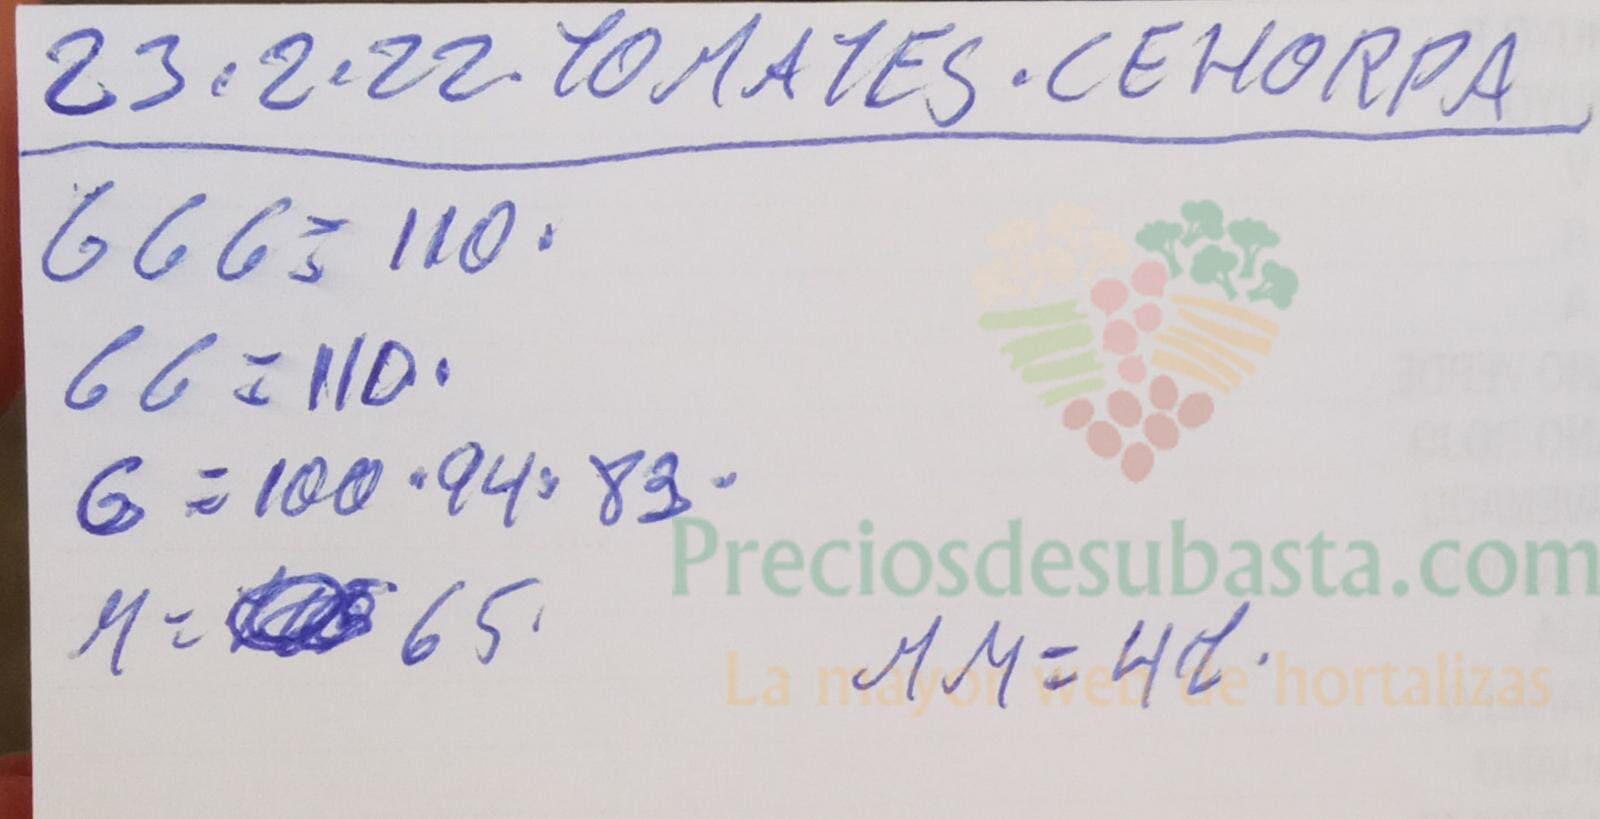 23.2.22. TOMATES. CEHORPA
GGG = 110.
GG = 110.
G = 100.94.83.
M = 65.
MM = 42.
Preciosdesubasta.com
La mayor web de hortalizas